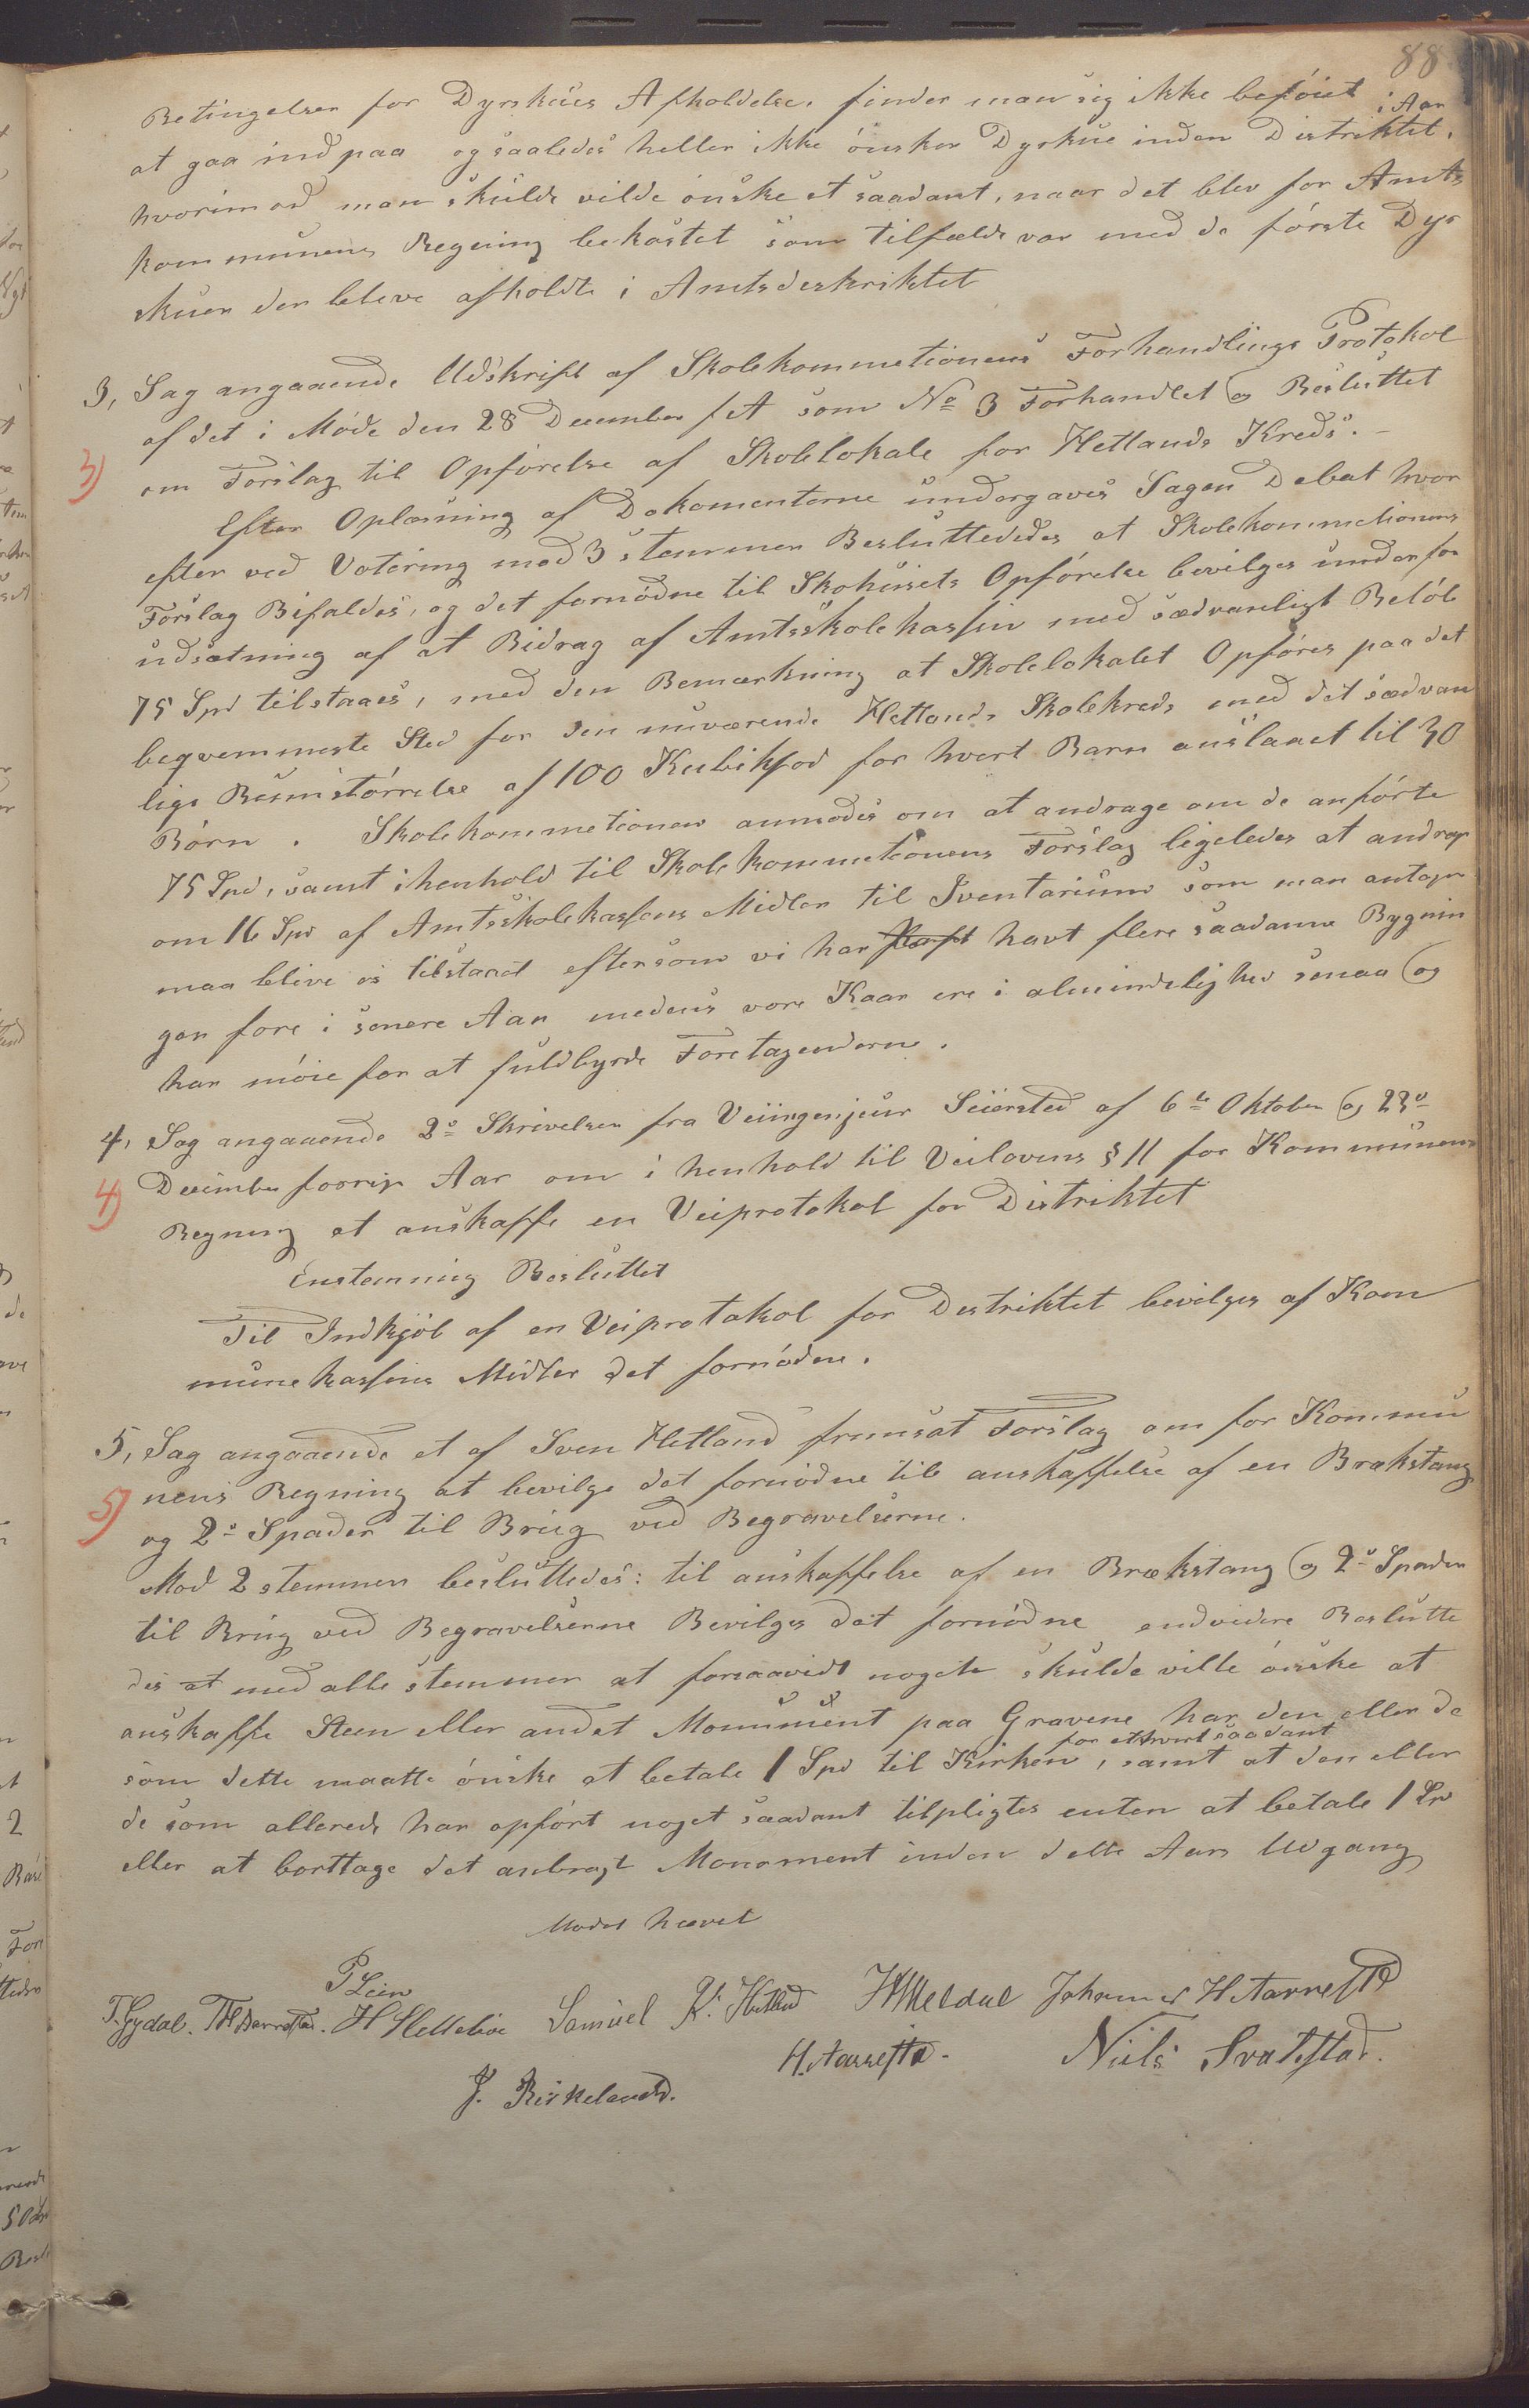 88
Betingelser for Dyrskues Afholdelse, finder man sig ikke beføiet
at gaa ind paa og saaledes heller ikke ønsker Dyrskue inden Distriktet i Aar
hvorimod man skulde vilde ønske et saadant, naar det blev for Amts
kommunens Regning bekostet som tilfælde var med de første Dyr
skuer der bleve afholdte i Amtsdestriktet
3, Sag angaaende Udskrift af Skolekommetionens Forhandlings Protokol
af det i Møde den 28 December f A som No 3 Forhandlet og Besluttet
3)
om Forslag til Opførelse af Skolelokale for Hetlands Kreds.-
Efter Oplæsning af Dokomenterne undergaves Sagen Debat hvor
efter ved Votering mod 3 stemmer Besluttededes at Skolekommetionens
Forslag Bifaldes, og det fornødne til Skohusets Opførelse bevilges under for
udsætning af at Bidrag af Amtsskolekassen med sædvanligt Beløb
75 Spd tilstaaes, med den Bemærkning at Skolelokalet Opføres paa det
beqvemmeste Sted for den nuværende Hetlands Skolekreds med det sædvan
lige Rumstørrelse af 100 Kubikfod for hvert Barn anslaaet til 30
Børn. Skolekommetionen anmodes om at andrage om de anførte
75 Spd, samt i henhold til Skolekommetionens Forslag ligeledes at andrage
om 16 Spd af Amtsskolekassens Midler til Iventarium som man antager
maa blive os tilstaaet eftersom vi har havt flere saadanne Bygnin
ger fore i senere Aar medens vore Kaar ere i almindelighed smaa og
har møie for at fuldbyrde Foretagenderne.
4, Sag angaaende 2de Skrivelser fra Veiingenjeur Seiersted af 6te Oktober og 23de
4)
December forrige Aar om i henhold til Veilovens § 11 for Kommunens
Regning at anskaffe en Veiprotokol for Distriktet
Enstemmig Besluttet
Til Indkjøb af en Veiprotokol for Destriktet bevilges af Kom
munekassens Midler det fornødene.
5, Sag angaaende et af Sven Hetland fremsat Forslag om for Kommu
nens Regning at bevilge det fornødne til anskaffelse af en Brækstang
5)
og 2de Spader til Brug ved Begravelserne.
Mod 2 stemmer besluttedes: til anskaffelse af en Brækstang og 2de Spader
til Brug ved Begravelserne Bevilges det fornødne endvidere Beslutte
des at med alle stemmer at forsaavidt nogen skulde ville ønske at
anskaffe Steen eller andet Monument paa Gravene har den eller de
som dette maatte ønske at betale 1 Spd til Kirken for ethvert saadant, samt at den eller
de som allerede har opført noget saadant tilpligtes enten at betale 1 Spd
eller at borttage det anbragte Monoment inden dette Aars Udgang
Mødet hævet
P Lein
T. Gydal. H Helleboe Samuel K. Hetland H Meldal Johannes H Aarrestad
H. Aarrestad. Niels Svalestad.
J. Birkeland.